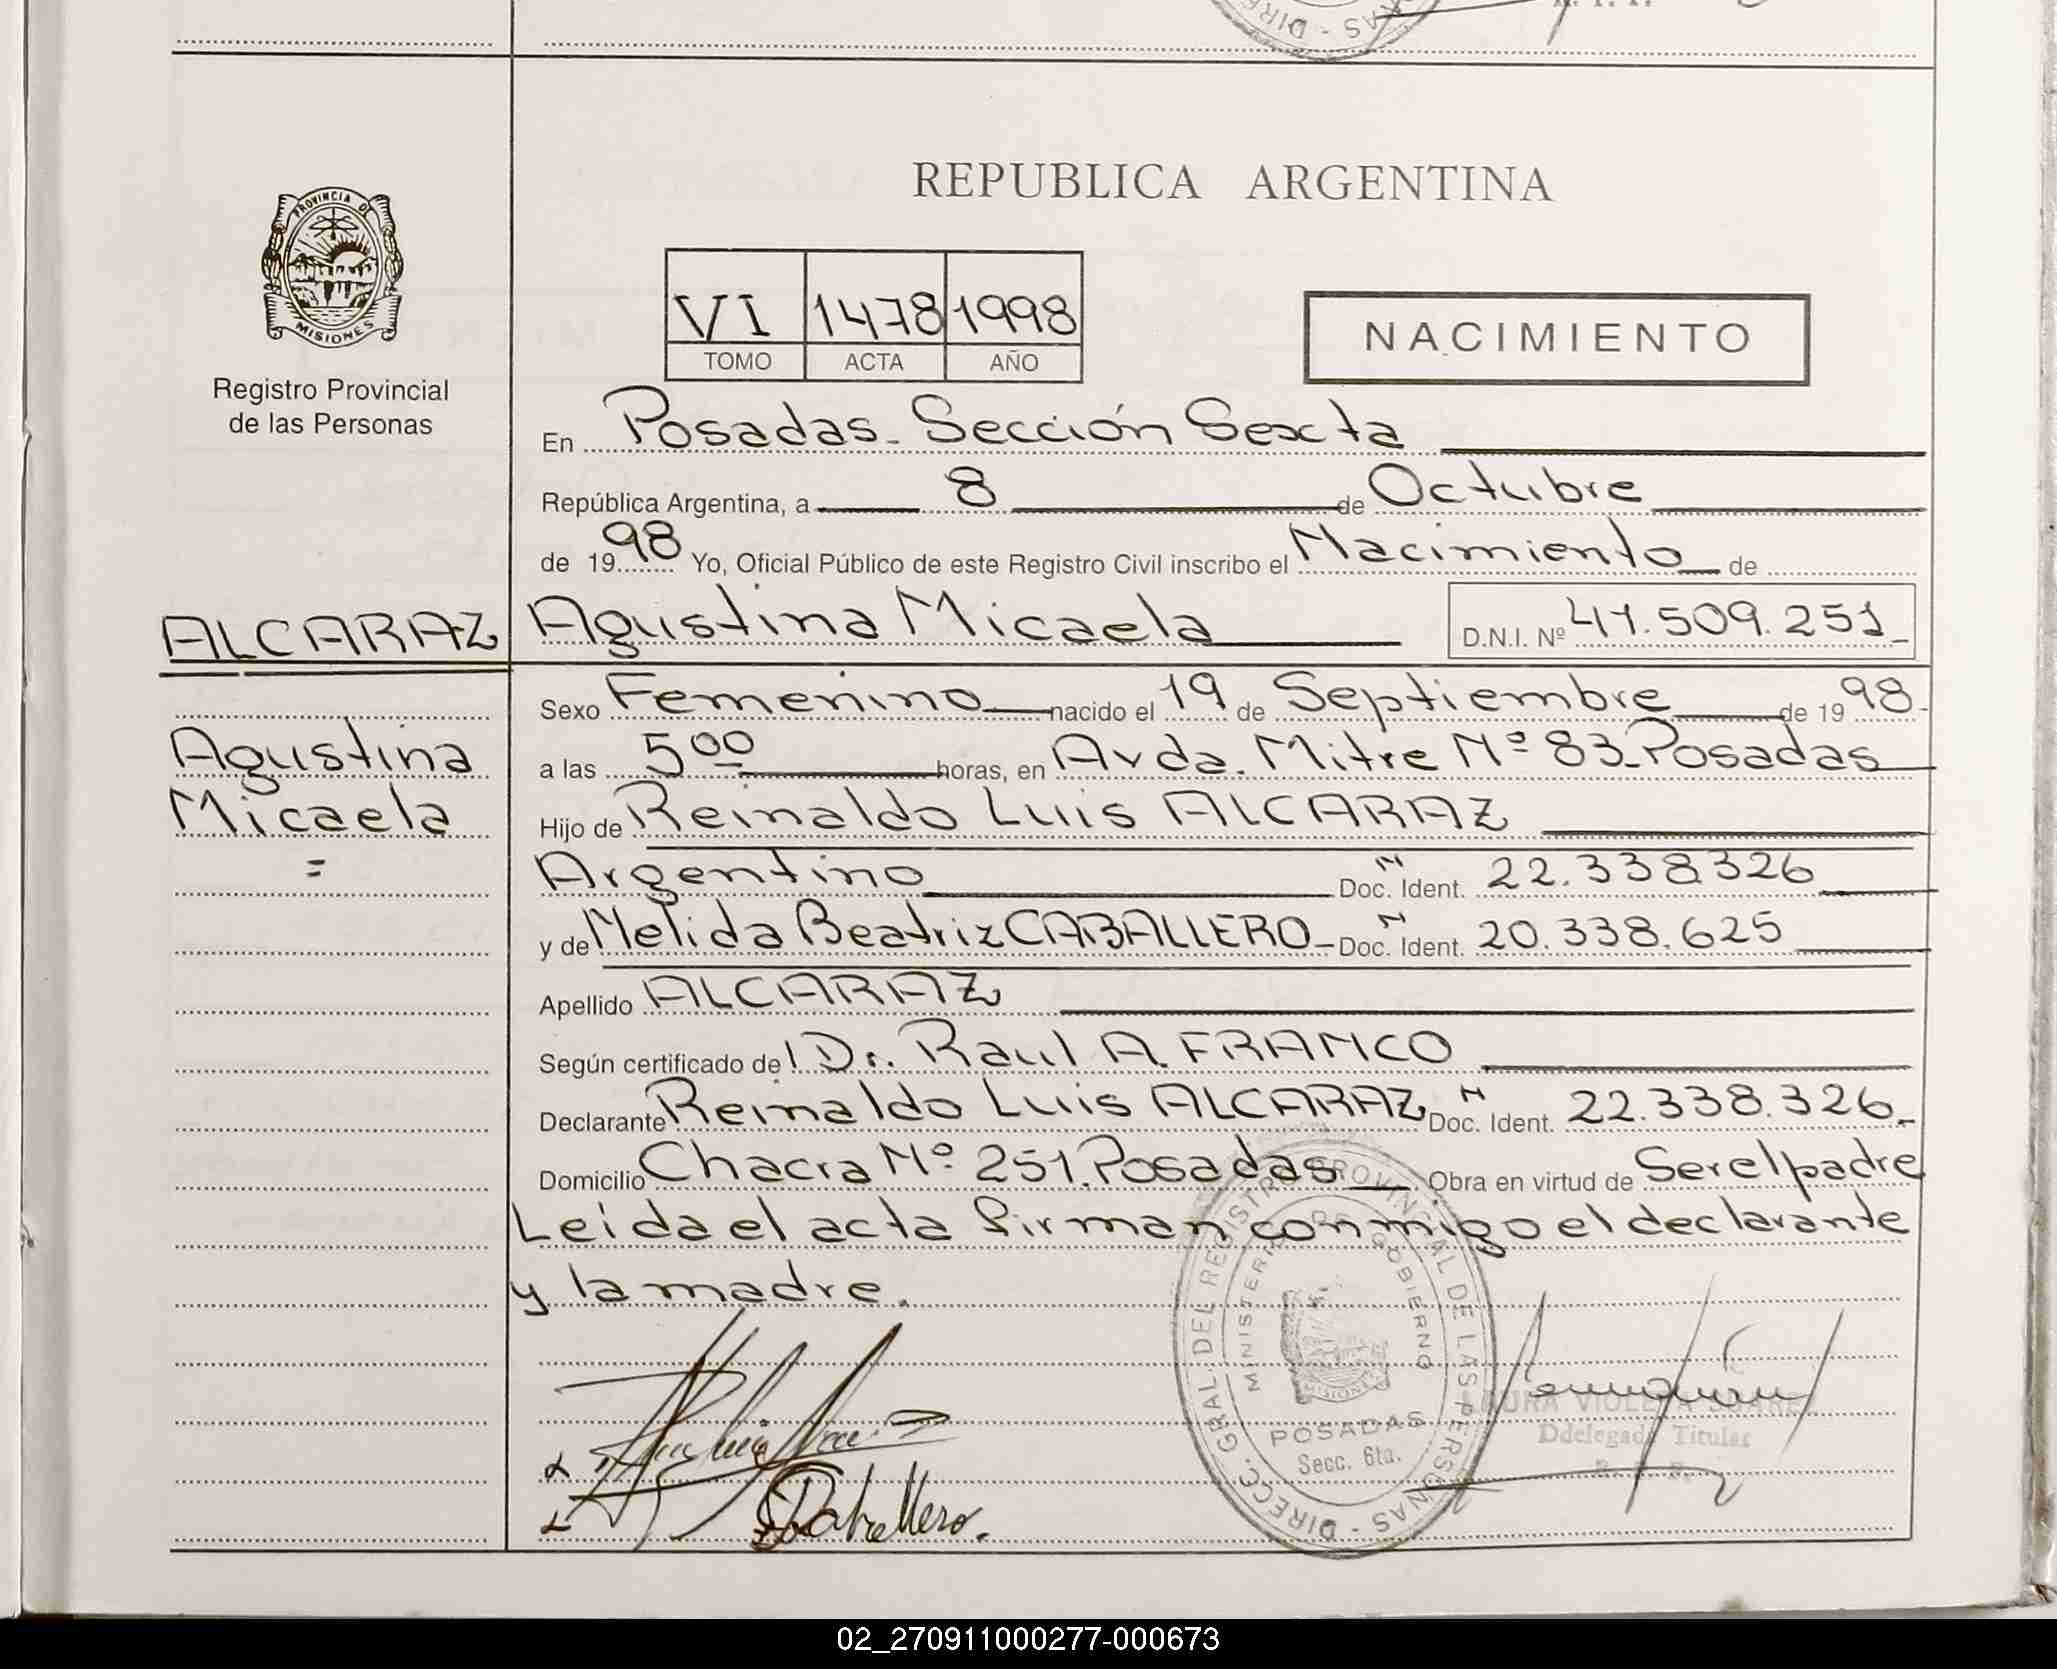 REPUBLICA ARGENTINA
PROVINCIA DE MISIONES
Registro Provincial
de las Personas
VI 1478 1998
TOMO ACTA AÑO
NACIMIENTO
En Posadas. Sección Sexta
República Argentina, a 8 de Octubre
de 1998 Yo, Oficial Público de este Registro Civil inscribo el Nacimiento de
ALCARAZ Agustina Micaela D.N.I. Nº 41.509.251
Agustina
Micaela
=
Sexo Femenino nacido el 19 de Septiembre de 1998
a las 5 00 horas, en Avda. Mitre Nº 83. Posadas
Hijo de Reinaldo Luis ALCARAZ
Argentino Doc. N Ident. 22.338326
y de Nelida Beatriz CABALLERO Doc. N Ident. 20.338.625
Apellido ALCARAZ
Según certificado de l Dr. Raul A. FRANCO
Declarante Reinaldo Luis ALCARAZ Doc. N Ident. 22.338.326
Domicilio Chacra Nº 251. Posadas Obra en virtud de Ser el padre
Leida el acta firman conmigo el declarante
y la madre.
DIRECC. GRAL. DEL REGISTRO PROVINCIAL DE LAS PERSONAS
MINISTERIO DE GOBIERNO
MISIONES
POSADAS
Secc. 6ta.
Caballero.
VIOLETA SUAREZ
Ddelegada Titular
02_270911000277-000673